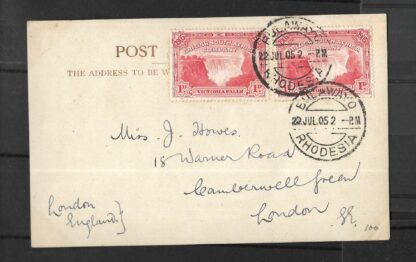 POST
THE ADDRESS TO BE W
BRITISH SOUTH AFRICA COMPANY
VICTORIA FALLS
1D
1D
VICTORIA FALLS
1D
1D
BULAWAYO
22 JUL 05 2 - PM
RHODESIA
BULAWAYO
22 JUL 05 2 - PM
RHODESIA
Miss J. Howes.
18 Warner Road
Camberwell Green
London
S.E.
London
England
100